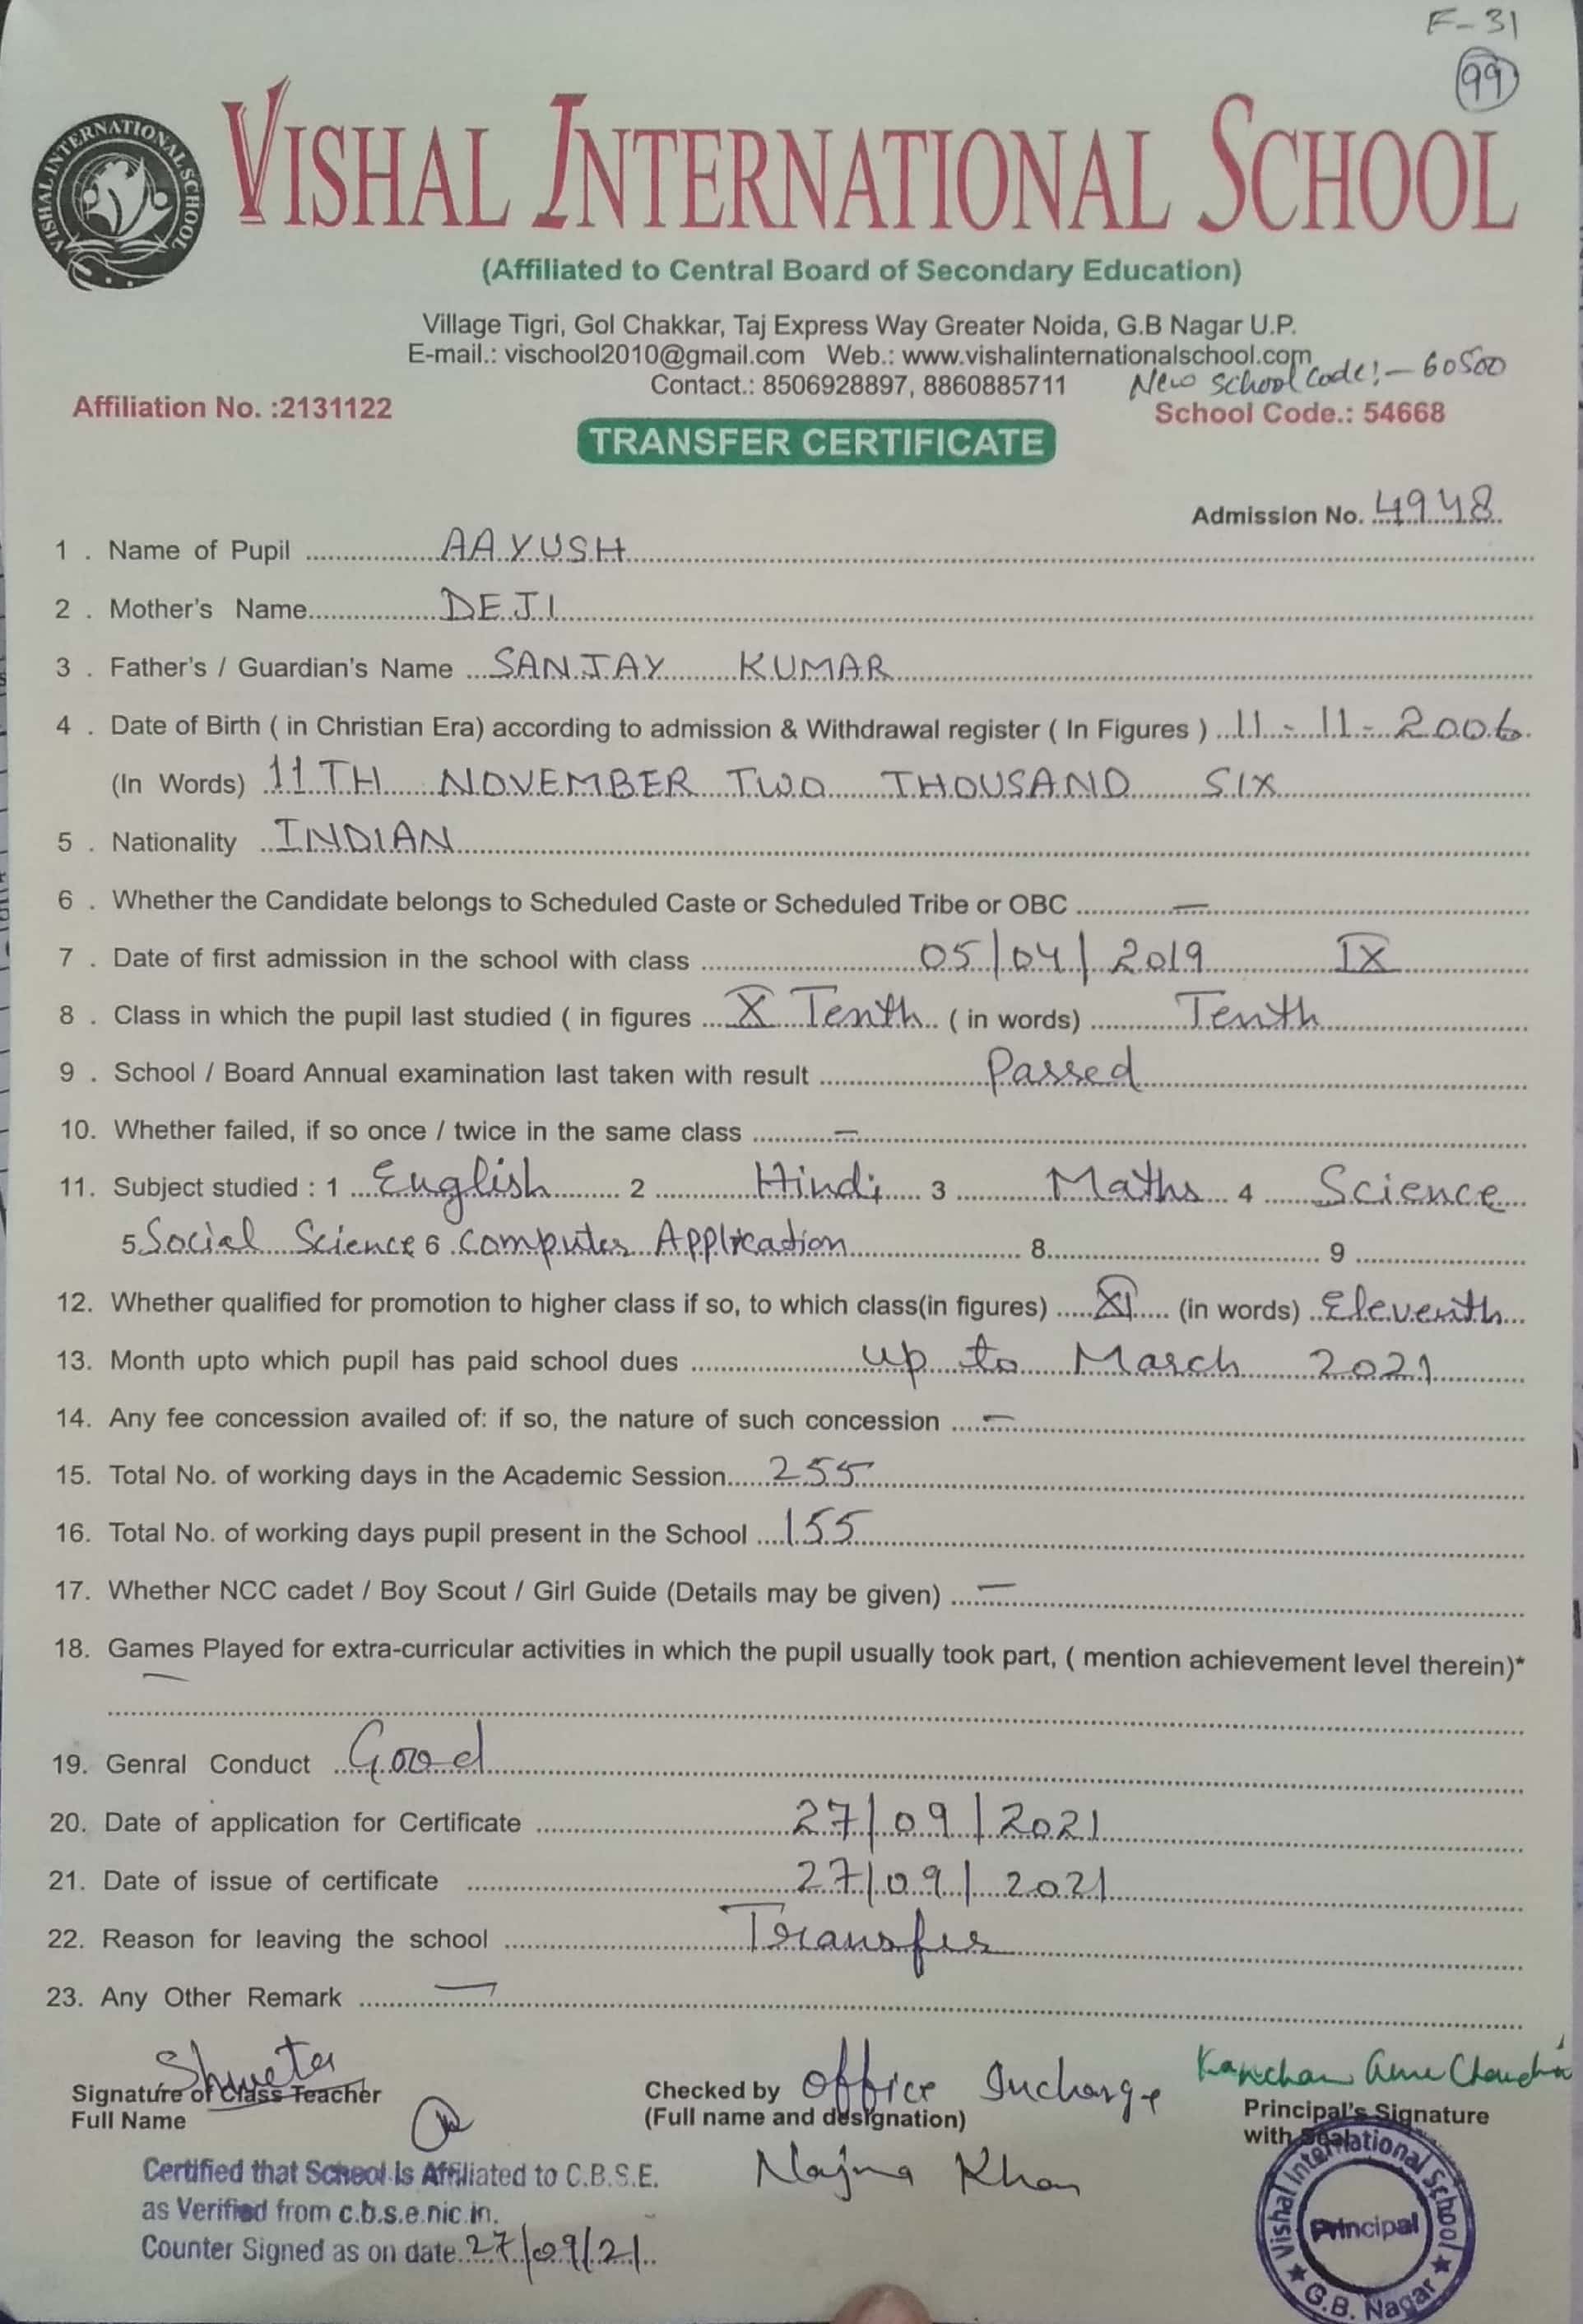 F-31
99
VISHAL INTERNATIONAL SCHOOL
VISHAL INTERNATIONAL SCHOOL
(Affiliated to Central Board of Secondary Education)
Village Tigri, Gol Chakkar, Taj Express Way Greater Noida, G.B Nagar U.P.
E-mail.: vischool2010@gmail.com Web.: www.vishalinternationalschool.com
Contact.: 8506928897, 8860885711 New School Code:- 60500
Affiliation No. :2131122 School Code.: 54668
TRANSFER CERTIFICATE
Admission No. 4948
1 . Name of Pupil AAYUSH
2 . Mother's Name DEJI
3 . Father's / Guardian's Name SANJAY KUMAR
4 . Date of Birth ( in Christian Era) according to admission & Withdrawal register ( In Figures ) 11-11-2006
(In Words) 11TH NOVEMBER TWO THOUSAND SIX
5 . Nationality INDIAN
6 . Whether the Candidate belongs to Scheduled Caste or Scheduled Tribe or OBC —
7 . Date of first admission in the school with class 05/04/2019 IX
8 . Class in which the pupil last studied ( in figures X Tenth ( in words) Tenth
9 . School / Board Annual examination last taken with result Passed
10. Whether failed, if so once / twice in the same class —
11. Subject studied : 1 English 2 Hindi 3 Maths 4 Science
5 Social Science 6 Computer Application 8 9
12. Whether qualified for promotion to higher class if so, to which class(in figures) XI (in words) Eleventh
13. Month upto which pupil has paid school dues up to March 2021
14. Any fee concession availed of: if so, the nature of such concession —
15. Total No. of working days in the Academic Session 255
16. Total No. of working days pupil present in the School 155
17. Whether NCC cadet / Boy Scout / Girl Guide (Details may be given) —
18. Games Played for extra-curricular activities in which the pupil usually took part, ( mention achievement level therein)*
—
19. Genral Conduct Good
20. Date of application for Certificate 27/09/2021
21. Date of issue of certificate 27/09/2021
22. Reason for leaving the school Transfer
23. Any Other Remark —
Shweta
Signature of Class Teacher
Full Name
Checked by Office Incharge
(Full name and designation)
Najma Khan
Kanchan
Principal's Signature
with Seal
Certified that School is Affiliated to C.B.S.E.
as Verified from c.b.s.e.nic.in.
Counter Signed as on date 27/09/21
Vishal International School
Principal
★ G.B. Nagar ★